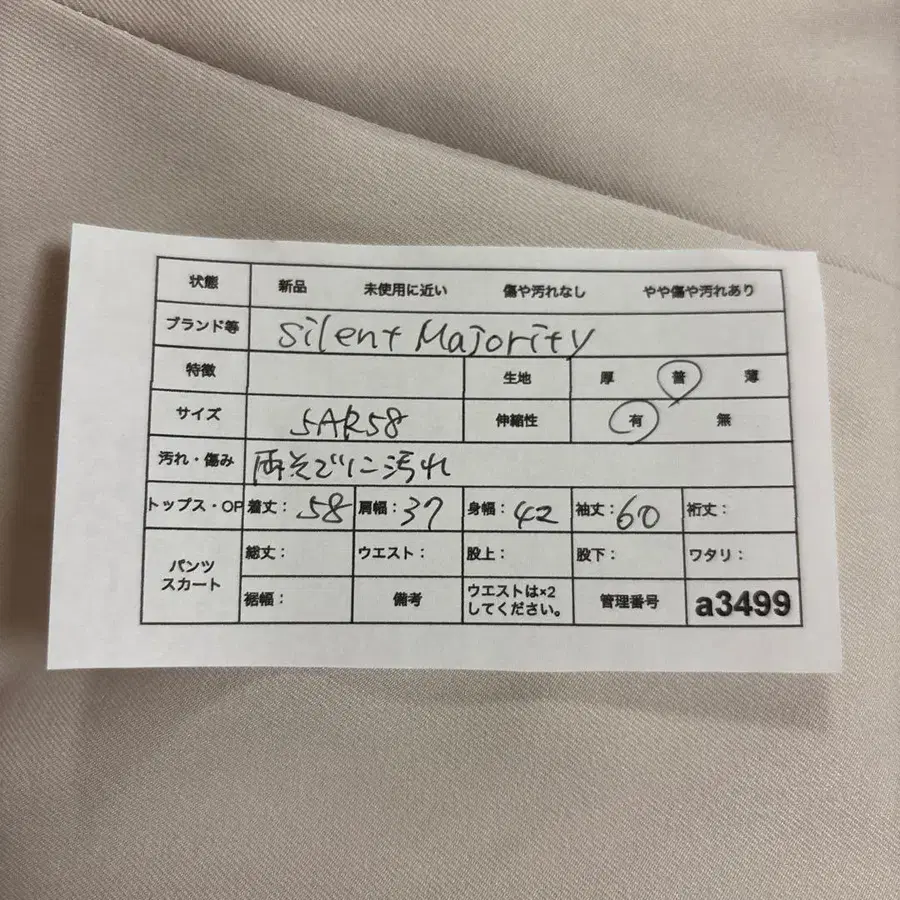 状態 新品 未使用に近い 傷や汚れなし やや傷や汚れあり
ブランド等 Silent Majority
特徴 生地 厚 普 薄
サイズ 5AR58 伸縮性 有 無
汚れ・傷み 両そでに汚れ
トップス・OP 着丈：58 肩幅：37 身幅：42 袖丈：60 裄丈：
パンツ スカート 総丈： ウエスト： 股上： 股下： ワタリ：
裾幅： 備考 ウエストは×2 してください。 管理番号 a3499